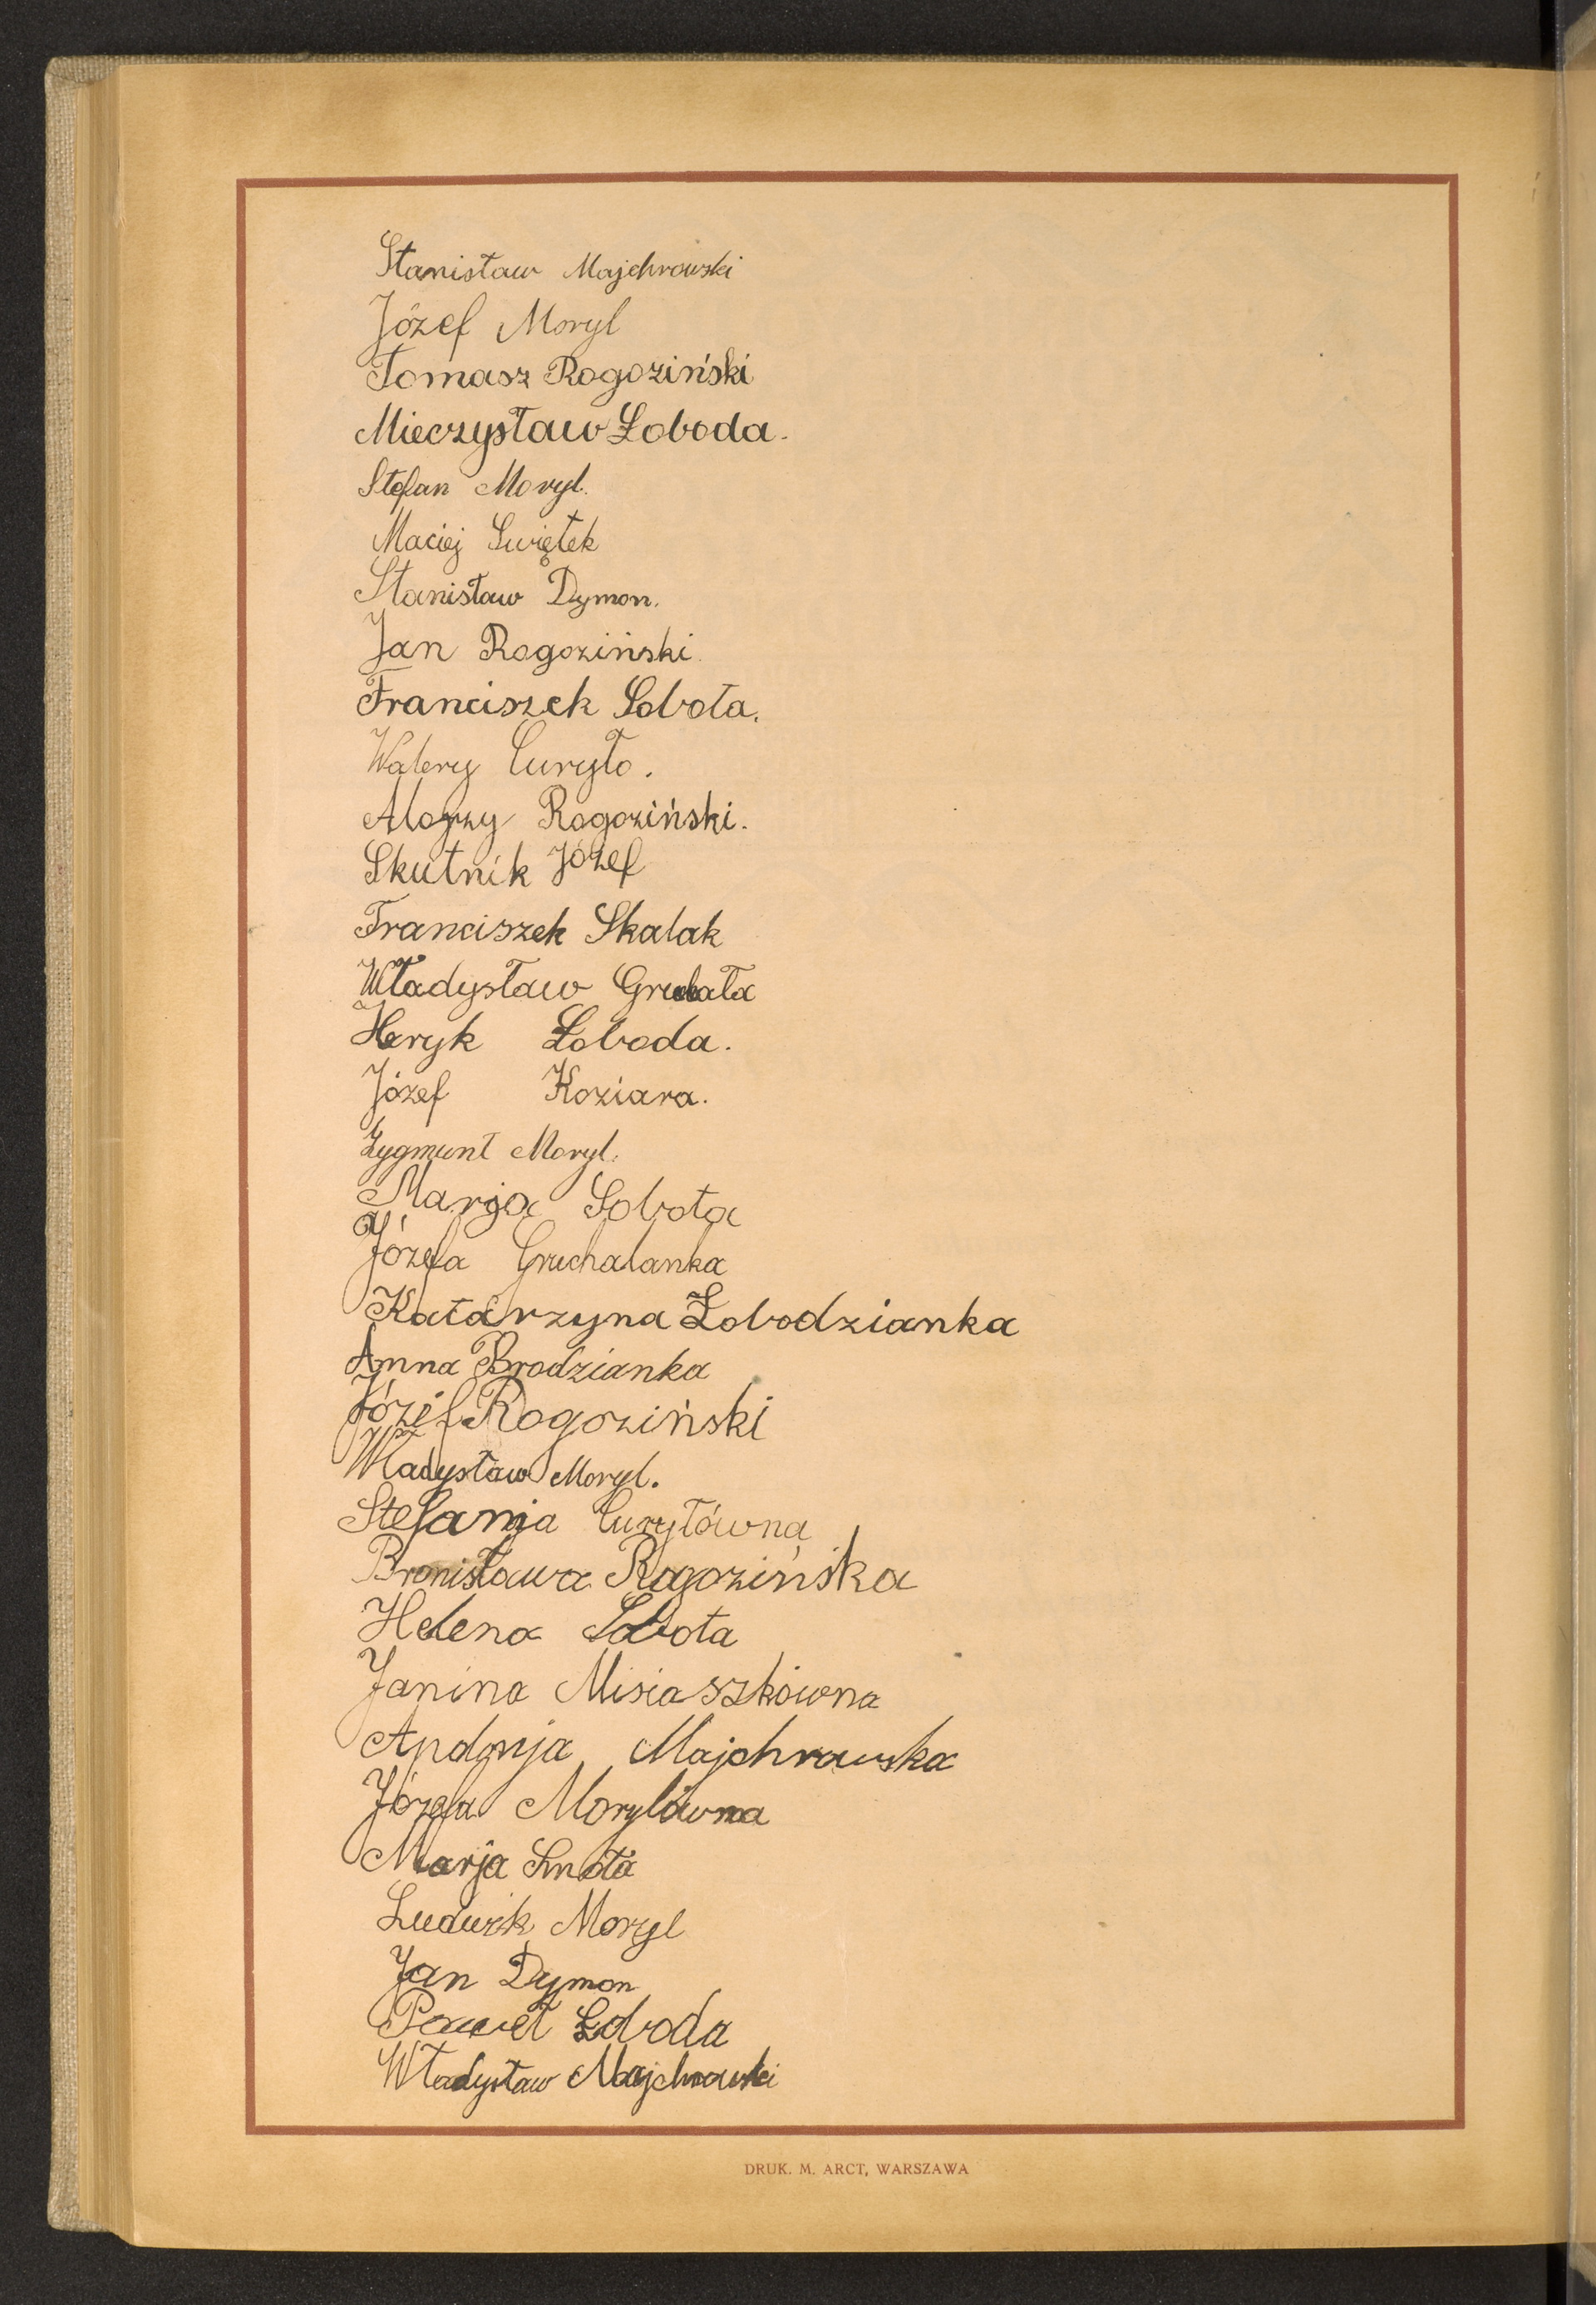 Stanisław Majchrowski
Józef Moryl
Tomasz Rogoziński
Mieczysław Łoboda.
Stefan Moryl.
Maciej Swiętek
Stanisław Dymon.
Jan Rogoziński.
Franciszek Sobota.
Walery Curyło.
Alojzy Rogoziński.
Skutnik Józef
Franciszek Skalak
Władysław
Heryk Łoboda.
Józef Koziara.
Zygmunt Moryl.
Marja Sobota
Józefa Gruchalanka
Katarzyna Łobodzianka
Anna Brodzianka
Józef Rogoziński
Władysław Moryl.
Stefanja Curyłówna
Bronisława Rogozińska
Helena Sobota
Janina Misiaszkówna
Apolonja Majchrowska
Józefa Morylówna
Marja
Ludwik Moryl
Jan Dymon
Paweł Łoboda
Władysław Majchrowski
DRUK. M. ARCT, WARSZAWA